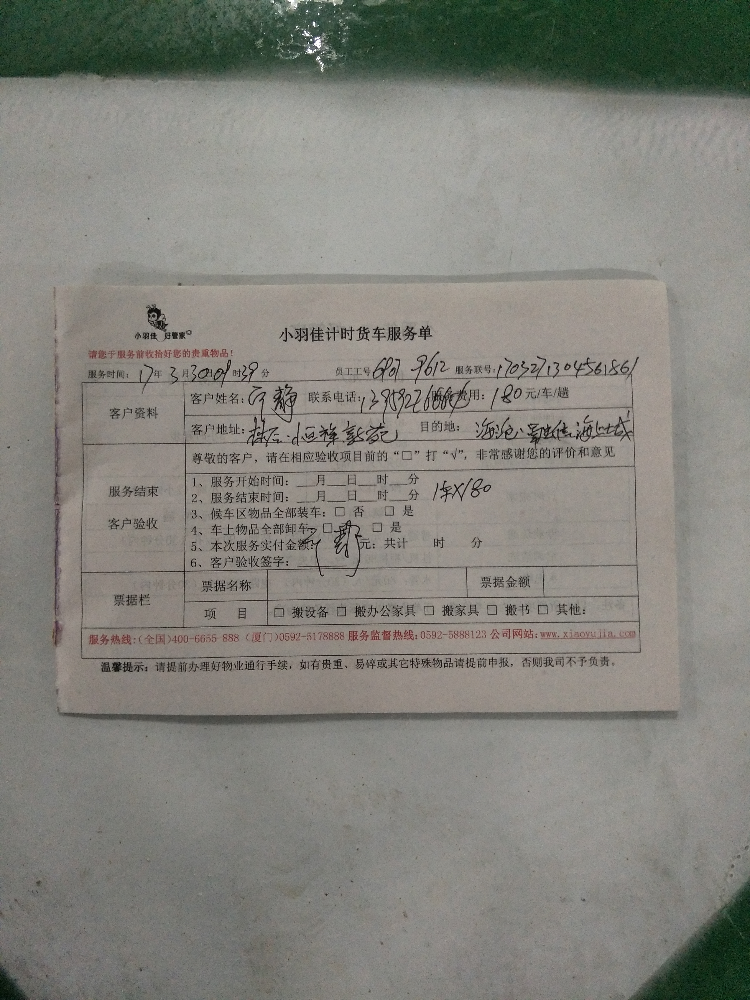 小羽佳 好管家
小羽佳计时货车服务单
请您于服务前收拾好您的贵重物品！
服务时间：17年3月30日09时39分 员工工号 服务联号：
客户资料
客户姓名： 静 联系电话： 费用：180元/车/趟
客户地址： 目的地：海沧 海上城
服务结束
客户验收
尊敬的客户，请在相应验收项目前的“□”打“√”，非常感谢您的评价和意见
1、服务开始时间：__月__日__时__分
2、服务结束时间：__月__日__时__分 1车X180
3、候车区物品全部装车：□ 否 □ 是
4、车上物品全部卸车 □ 是
5、本次服务实付金额 元：共计 时 分
6、客户验收签字：
票据栏
票据名称 票据金额
项 目 □ 搬设备 □ 搬办公家具 □ 搬家具 □ 搬书 □ 其他：
服务热线：(全国)400-6655-888 (厦门)0592-5178888 服务监督热线：0592-5888123 公司网站：www.xiaoyujia.com
温馨提示：请提前办理好物业通行手续，如有贵重、易碎或其它特殊物品请提前申报，否则我司不予负责。